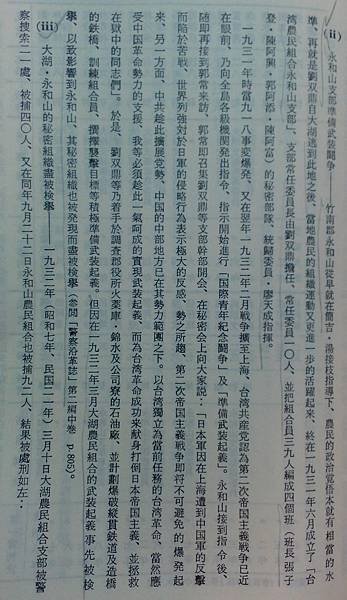 (ii) 永和山支部準備武裝鬥爭—— 竹南郡永和山從早就在簡吉・湯接枝指導下、農民的政治覺悟本就有相當的水
準、再就是劉双鼎自大湖逃到此地之後、當地農民的組織運動又更進一步的活躍起來、終在一九三一年六月成立了「台
湾農民組合永和山支部」、支部常任委員長由劉双鼎擔任、常任委員一〇人、並把組合員三九人編成四個班（班長 張子
登・陳阿興・郭阿添・陳阿富）的秘密部隊、統歸委員・廖天成指揮。
一九三一年時當九一八事変爆発、又在翌年一九三二年一月戦爭擴至上海、台湾共産党認為第二次帝国主義戦爭已近
在眼前、乃向全島各級機関発出指令、指示開始進行「国際青年紀念鬥爭」及「準備武装起義」。永和山接到指令後、
隨即再接到郭常來訪、郭常即召集劉双鼎等支部幹部開会、在秘密会上向大家說：「日本軍因在上海遭到中国軍的反擊
而陥於苦戦、世界列強対於日軍的侵略行為表示極大的反感、勢之所趨、第二次帝国主義戦爭即將不可避免的爆発起
來、另一方面、中共趁此擴展党勢、中国的中部地方已在其勢力範囲之下。以台湾独立為當前任務的台湾革命、當然應
受中国革命勢力的支援、我等必須趁此一氣呵成的實現武装起義、而為台湾革命成功来献身打倒日本帝国主義、並拯救
在獄中的同志們」。於是、劉双鼎等乃著手於調査郡役所火薬庫・錦水及公司寮的石油廠、並計劃爆破縦貫鉄道及造橋
的鉄橋、訓練組合員、選擇襲擊目標等積極準備武装起義。但因在一九三二年三月大湖農民組合的武装起義事先被検
擧、以致影響到永和山、其秘密組織也被発現而盡被検擧（参閲『警察沿革誌』第二編中巻 p.805）。
(iii) 大湖・永和山的秘密組織盡被検擧—— 一九三二年（昭和七年、民国二一年）三月十日大湖農民組合支部被警
察搜索二一處、被捕四〇人、又在同年九月二十二日永和山農民組合也被捕九二人、結果被處刑如左：